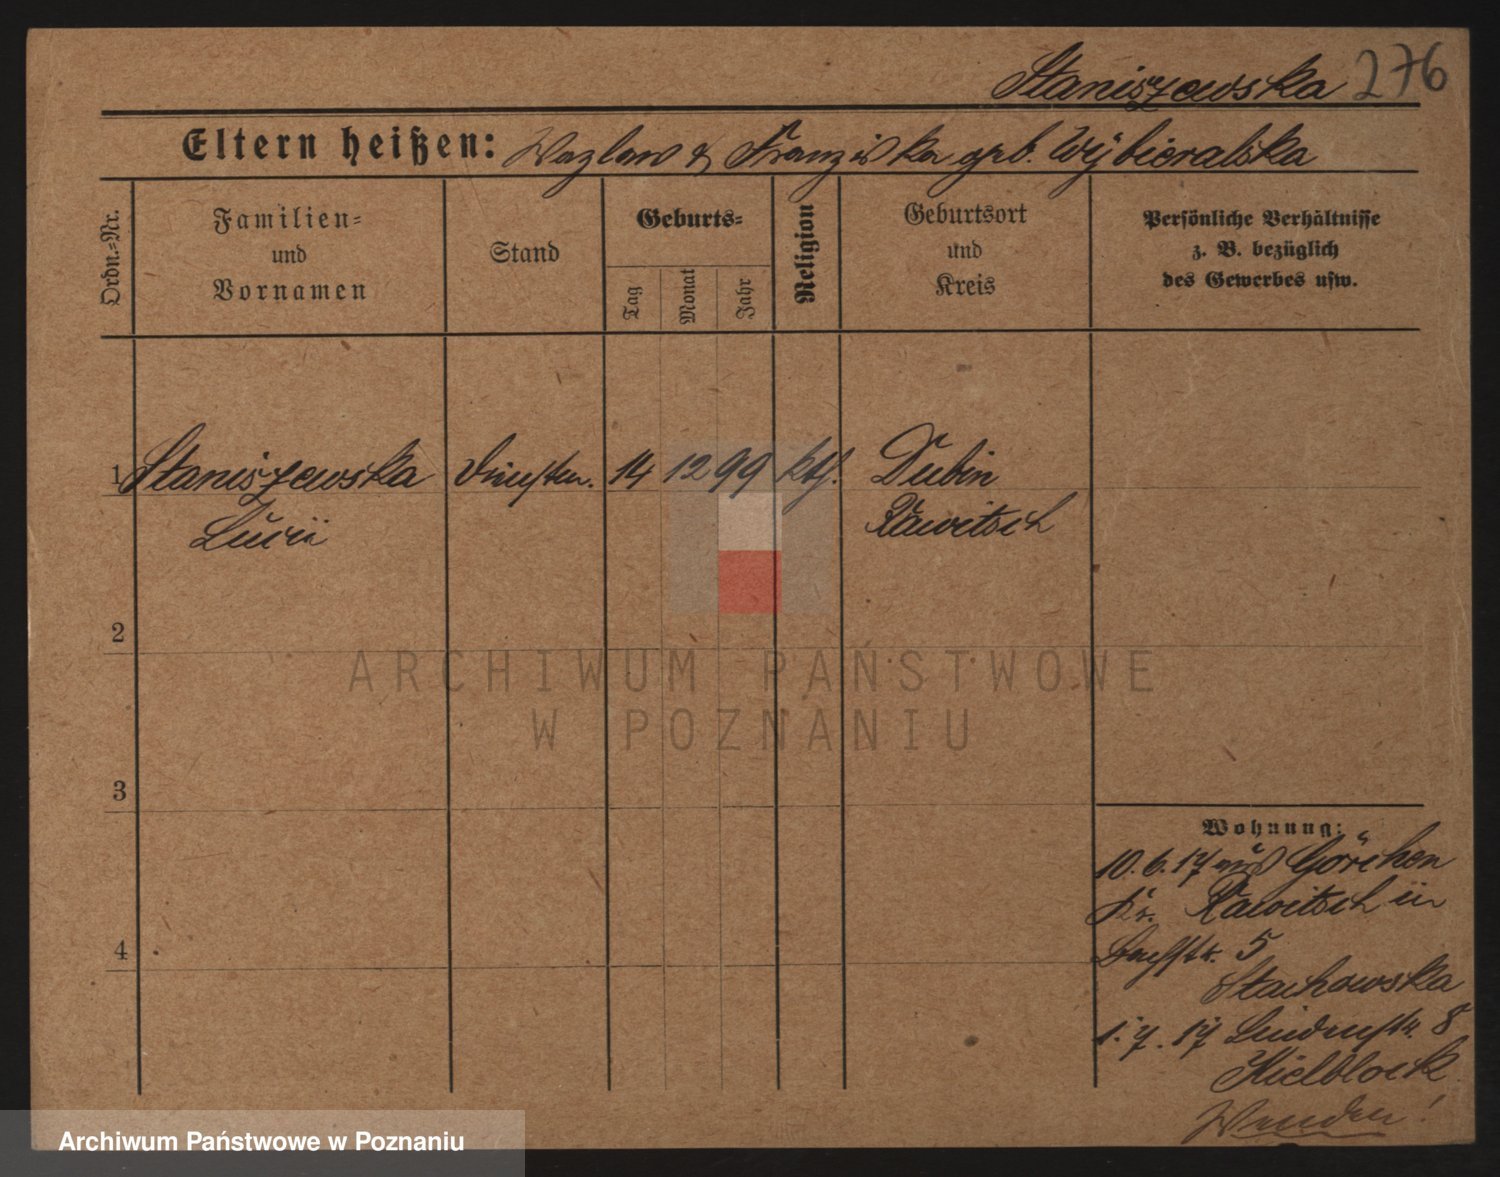 Staniszewska 276
Eltern heißen: Wazlaw & Franziska geb. Wybieralska
Ordn.=Nr.
Familien=
und
Vornamen
Stand
Geburts=
Tag
Monat
Jahr
Religion
Geburtsort
und
Kreis
Persönliche Verhältnisse
z. B. bezüglich
des Gewerbes usw.
1 Staniszewska Dienstm. 14 12 99 kth. Dubin
Rawitsch
2
3
4
Wohnung:
10.6.17 aus Görchen
Kr. Rawitsch in
5
Stachowska
1.7.17 Lindenstr. 8
Kielblock
Wenden!
ARCHIWUM PAŃSTWOWE
W POZNANIU
Archiwum Państwowe w Poznaniu